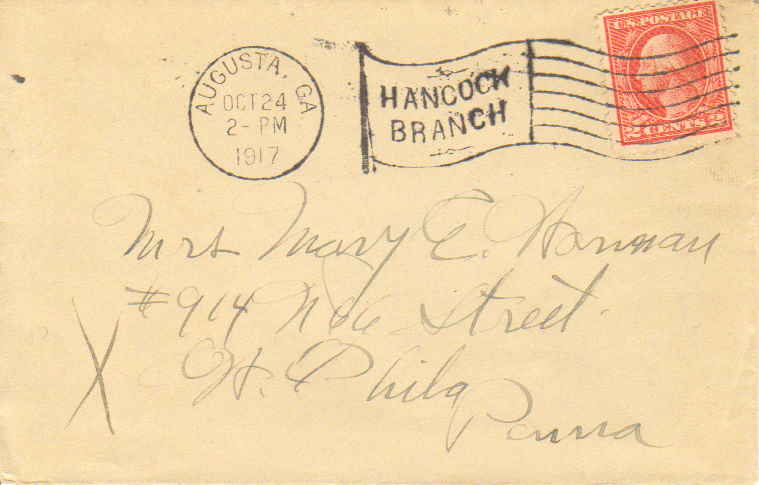 AUGUSTA, GA.
OCT 24
2 - PM
1917
HANCOCK
BRANCH
U.S. POSTAGE
2 CENTS 2
Mrs Mary E.
#914 Street
W. Phila
Penna
X